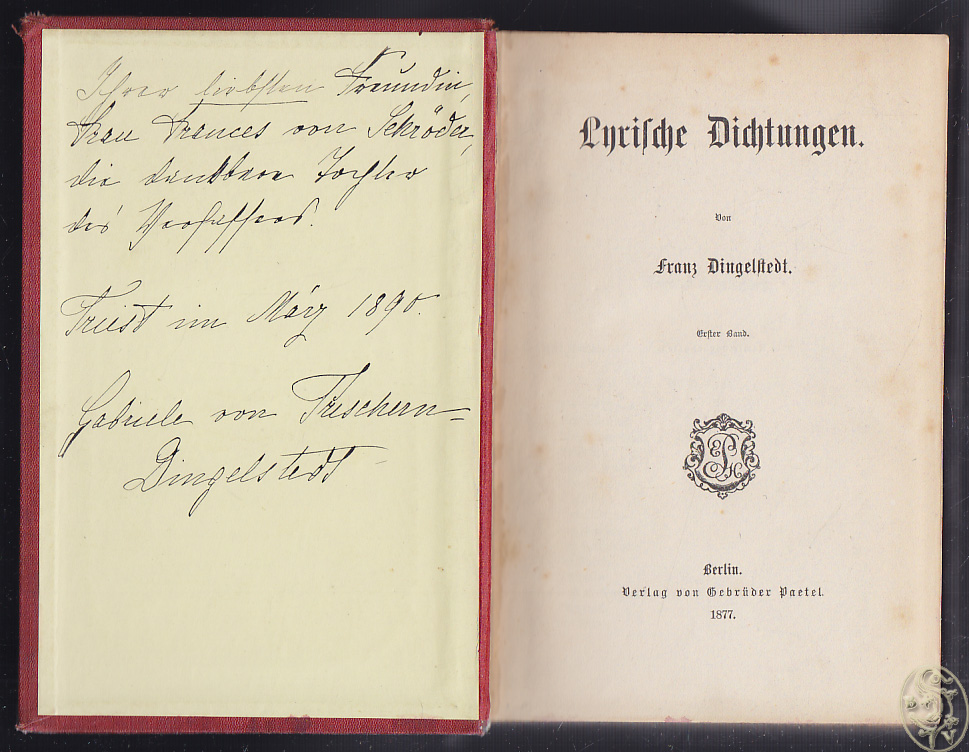 Ihrer liebsten Freundin,
Frau Frances von Schröder,
die dankbare Tochter
des Verfassers.
Triest im März 1890.
Gabriele von Trischern=
Dingelstedt
Lyrische Dichtungen.
Von
Franz Dingelstedt.
Erster Band.
Berlin.
Verlag von Gebrüder Paetel.
1877.